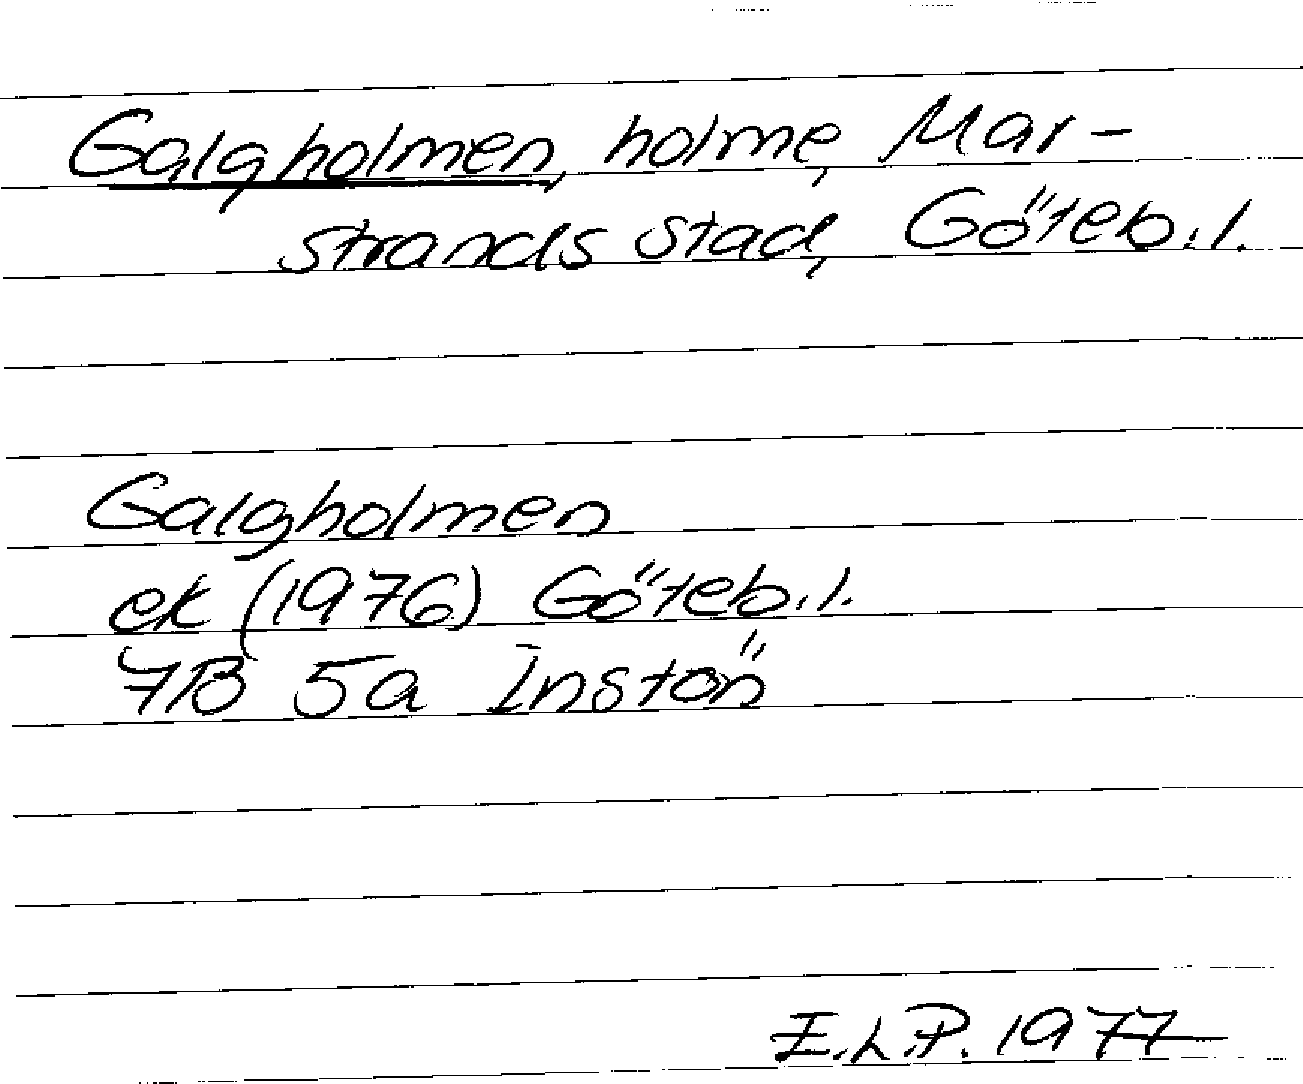 Galgholmen, holme, Mar-
strands stad, Göteb.l.
Galgholmen
ek (1976) Göteb.l.
7B 5a Instön
E.L.P. 1977